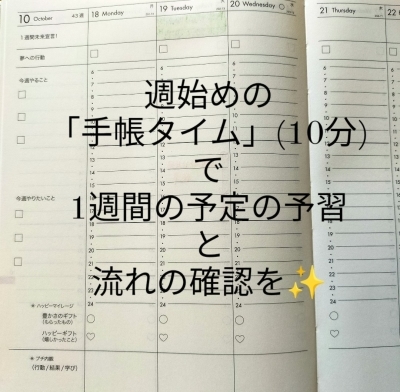 10 October 43週
18 Monday
19 Tuesday
20 Wednesday
21 Thursday
22
1週間未来宣言!
夢への行動
今週やること
週始めの
「手帳タイム」(10分)
で
1週間の予定の予習
と
流れの確認を✨
今週やりたいこと
＊ハッピーマイレージ
豊かさのギフト
(もらったもの)
ハッピーギフト
(嬉しかったこと)
＊プチ内観
(行動/結果/学び)